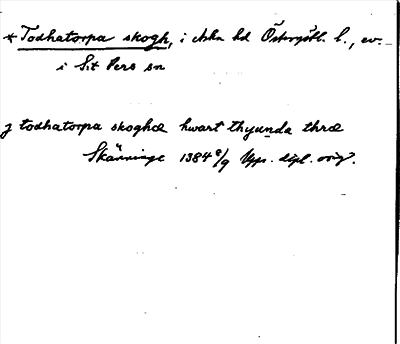 * Todhatorpa skogh, i okän hd Östergötl. l., ev.
i S:t Pers sn
j todhatorpa skoghæ hwart thyænda thræ
Skänninge 1384 8/9 Upps. dipl. orig.